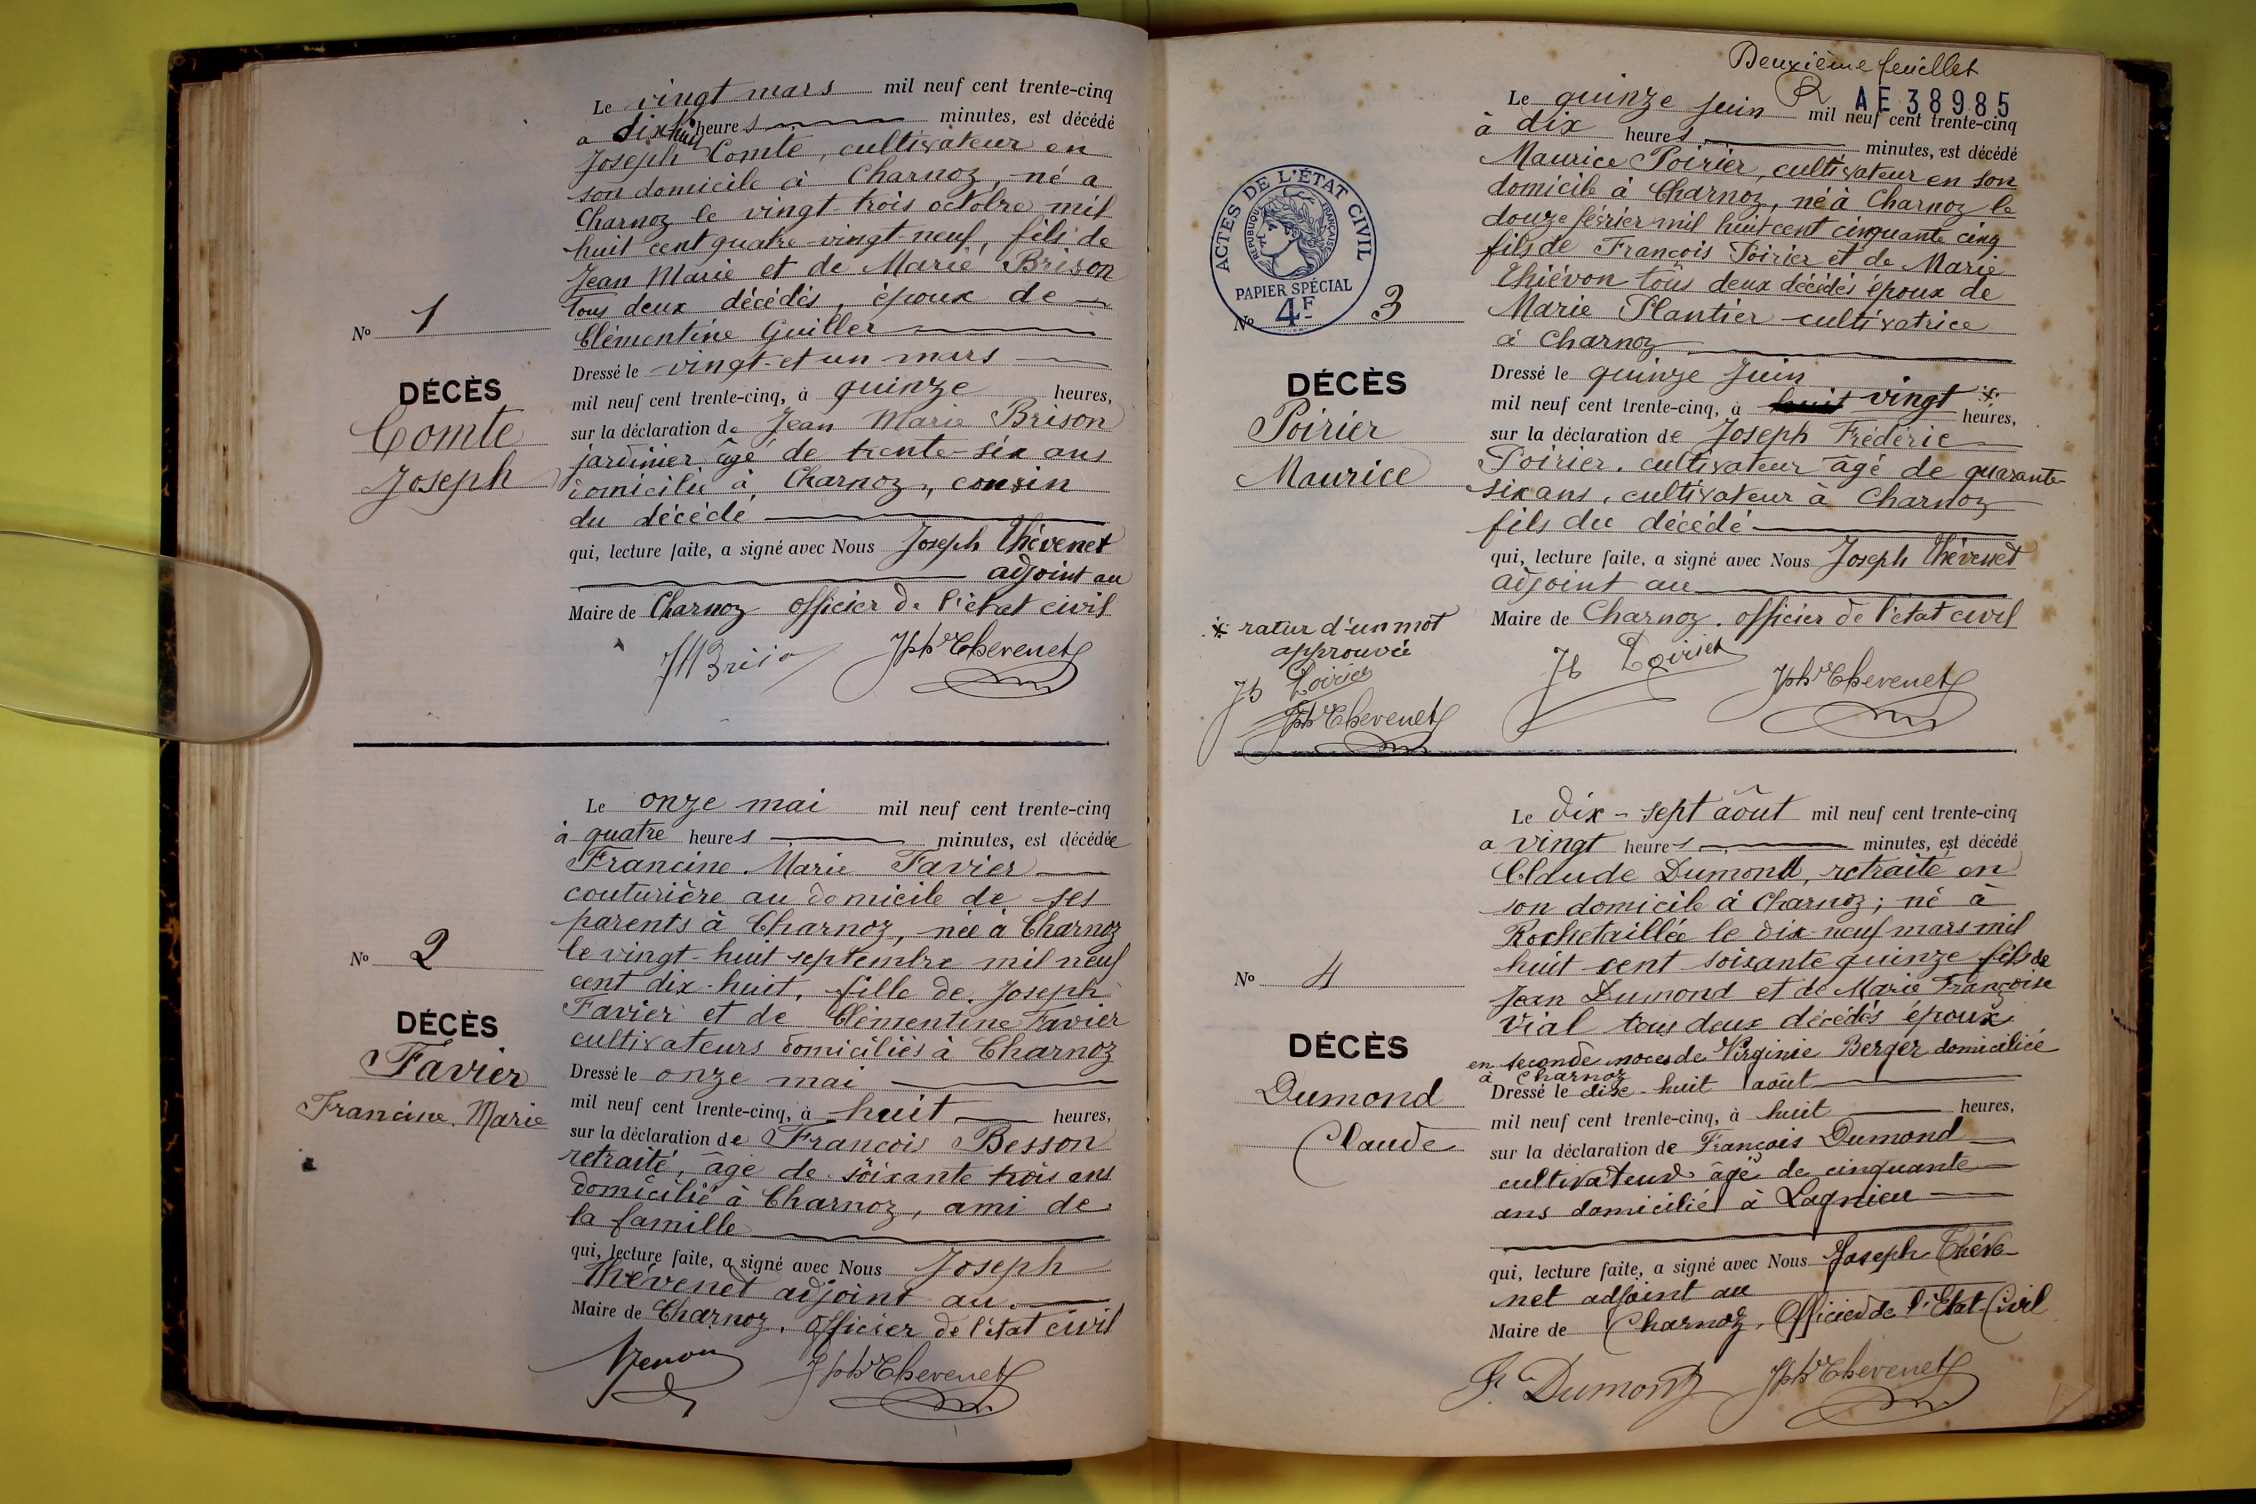 Le vingt mars mil neuf cent trente-cinq
a dix huit heures minutes, est décédé
Joseph Comte, cultivateur en
son domicile à Charnoz, né a
Charnoz le vingt-trois octobre mil
huit cent quatre-vingt neuf, fils de
Jean Marie et de Marie Brison
tous deux décédés, époux de
Clémentine Guiller
Dressé le vingt-et un mars
mil neuf cent trente-cinq, à quinze heures,
sur la déclaration de Jean Marie Brison
jardinier âgé de trente-six ans
domicilié à Charnoz, cousin
du décédé
qui, lecture faite, a signé avec Nous Joseph Thévenet
adjoint au
Maire de Charnoz officier de l'état civil
JMBrison Jph Thevenet
No 1
DÉCÈS
Comte
Joseph
Le onze mai mil neuf cent trente-cinq
à quatre heures minutes, est décédée
Francine Marie Favier
couturière au domicile de ses
parents à Charnoz, née à Charnoz
le vingt-huit septembre mil neuf
cent dix-huit, fille de Joseph
Favier et de Clémentine Favier
cultivateurs domiciliés à Charnoz
Dressé le onze mai
mil neuf cent trente-cinq, à huit heures,
sur la déclaration de François Besson
retraité, âgé de soixante trois ans
domicilié à Charnoz, ami de
la famille
qui, lecture faite, a signé avec Nous Joseph
Thévenet adjoint au
Maire de Charnoz, officier de l'état civil
Jph Thevenet
No 2
DÉCÈS
Favier
Francine Marie
Deuxième feuillet
AE 38985
Le quinze juin mil neuf cent trente-cinq
à dix heures minutes, est décédé
Maurice Poirier, cultivateur en son
domicile à Charnoz, né à Charnoz le
douze février mil huit cent cinquante cinq
fils de François Poirier et de Marie
Thiévon tous deux décédés époux de
Marie Plantier cultivatrice
à Charnoz
Dressé le quinze Juin
mil neuf cent trente-cinq, à huit vingt * heures,
sur la déclaration de Joseph Frédéric
Poirier, cultivateur âgé de quarante-
six ans, cultivateur à Charnoz
fils du décédé
qui, lecture faite, a signé avec Nous Joseph Thévenet
adjoint au
Maire de Charnoz, officier de l'état civil
Jh Poirier Jph Thevenet
ACTES DE L'ÉTAT CIVIL
RÉPUBLIQUE FRANÇAISE
PAPIER SPÉCIAL
4F
No 3
DÉCÈS
Poirier
Maurice
* ratur d'un mot
approuvée
Jh Poirier
Jph Thevenet
Le dix-sept août mil neuf cent trente-cinq
a vingt heures minutes, est décédé
Claude Dumond, retraité en
son domicile à Charnoz; né à
Rochetaillée le dix-neuf mars mil
huit cent soixante quinze fils de
Jean Dumond et de Marie Françoise
Vial tous deux décédés époux
en seconde noces de Virginie Berger domiciliée
à Charnoz
Dressé le dix-huit août
mil neuf cent trente-cinq, à huit heures,
sur la déclaration de François Dumond
cultivateur âgé de cinquante
ans domicilié à Lagnieu
qui, lecture faite, a signé avec Nous Joseph Théve-
net adjoint au
Maire de Charnoz, Officier de l'Etat-Civil
F. Dumond Jph Thevenet
No 4
DÉCÈS
Dumond
Claude